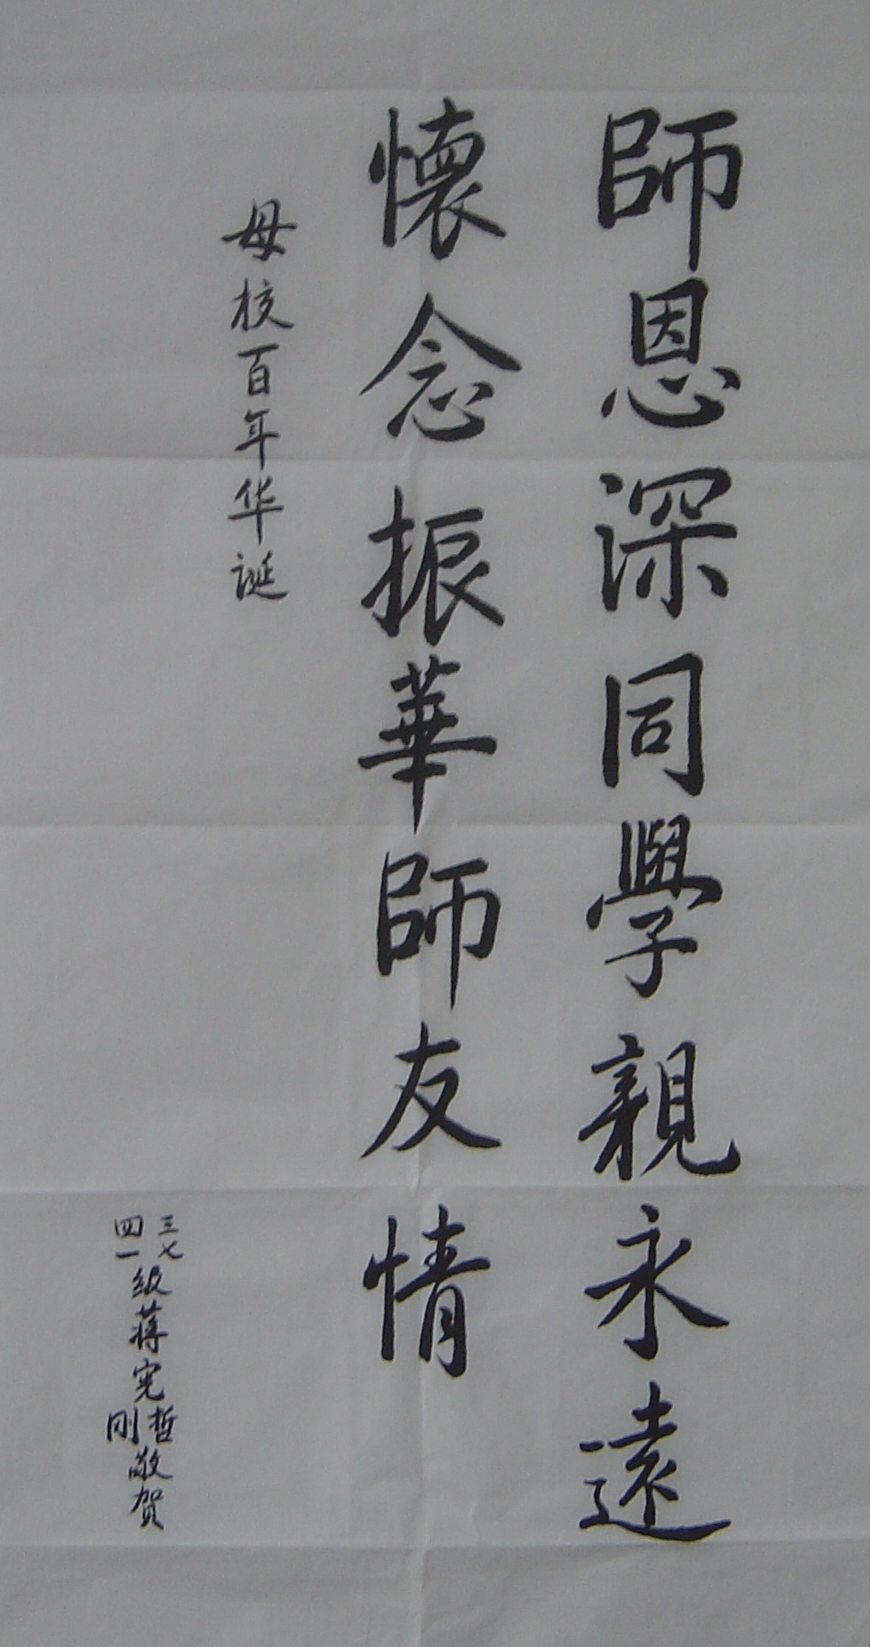 師恩深同學親永遠
懷念振華師友情
母校百年华诞
三七
四一
级蒋宪
哲
刚
敬贺